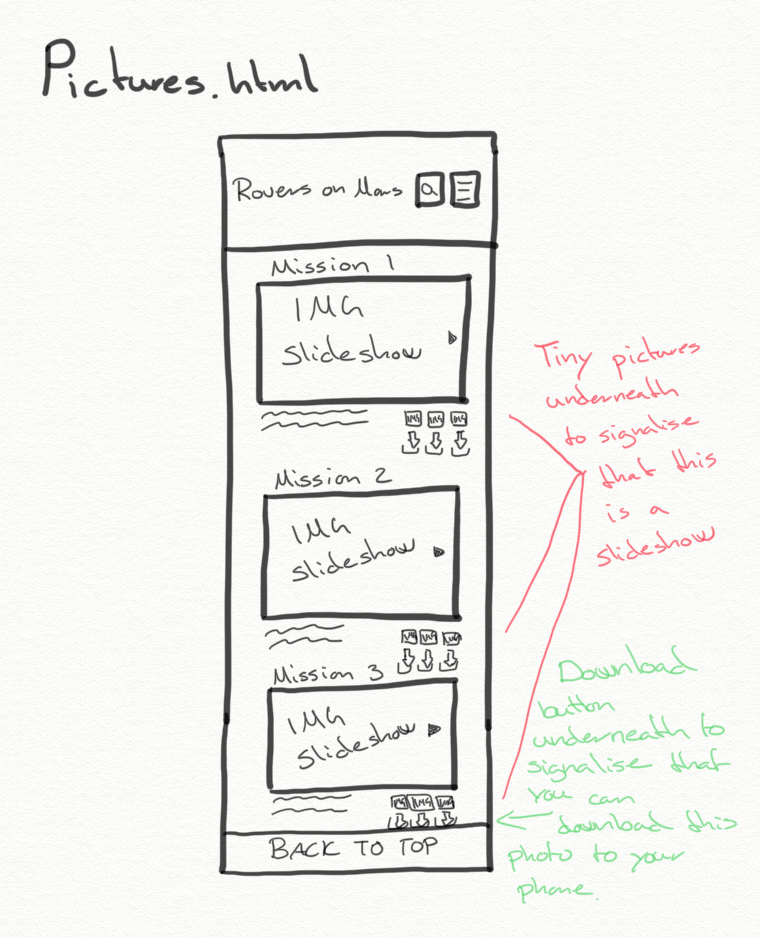 Pictures.html
Rovers on Mars
Mission 1
IMG
Slideshow
IMG IMG IMG
Mission 2
IMG
Slideshow
IMG IMG IMG
Mission 3
IMG
Slideshow
IMG IMG IMG
BACK TO TOP
Tiny pictures
underneath
to signalise
that this
is a
slideshow
Download
button
underneath to
signalise that
you can
download this
photo to your
phone.